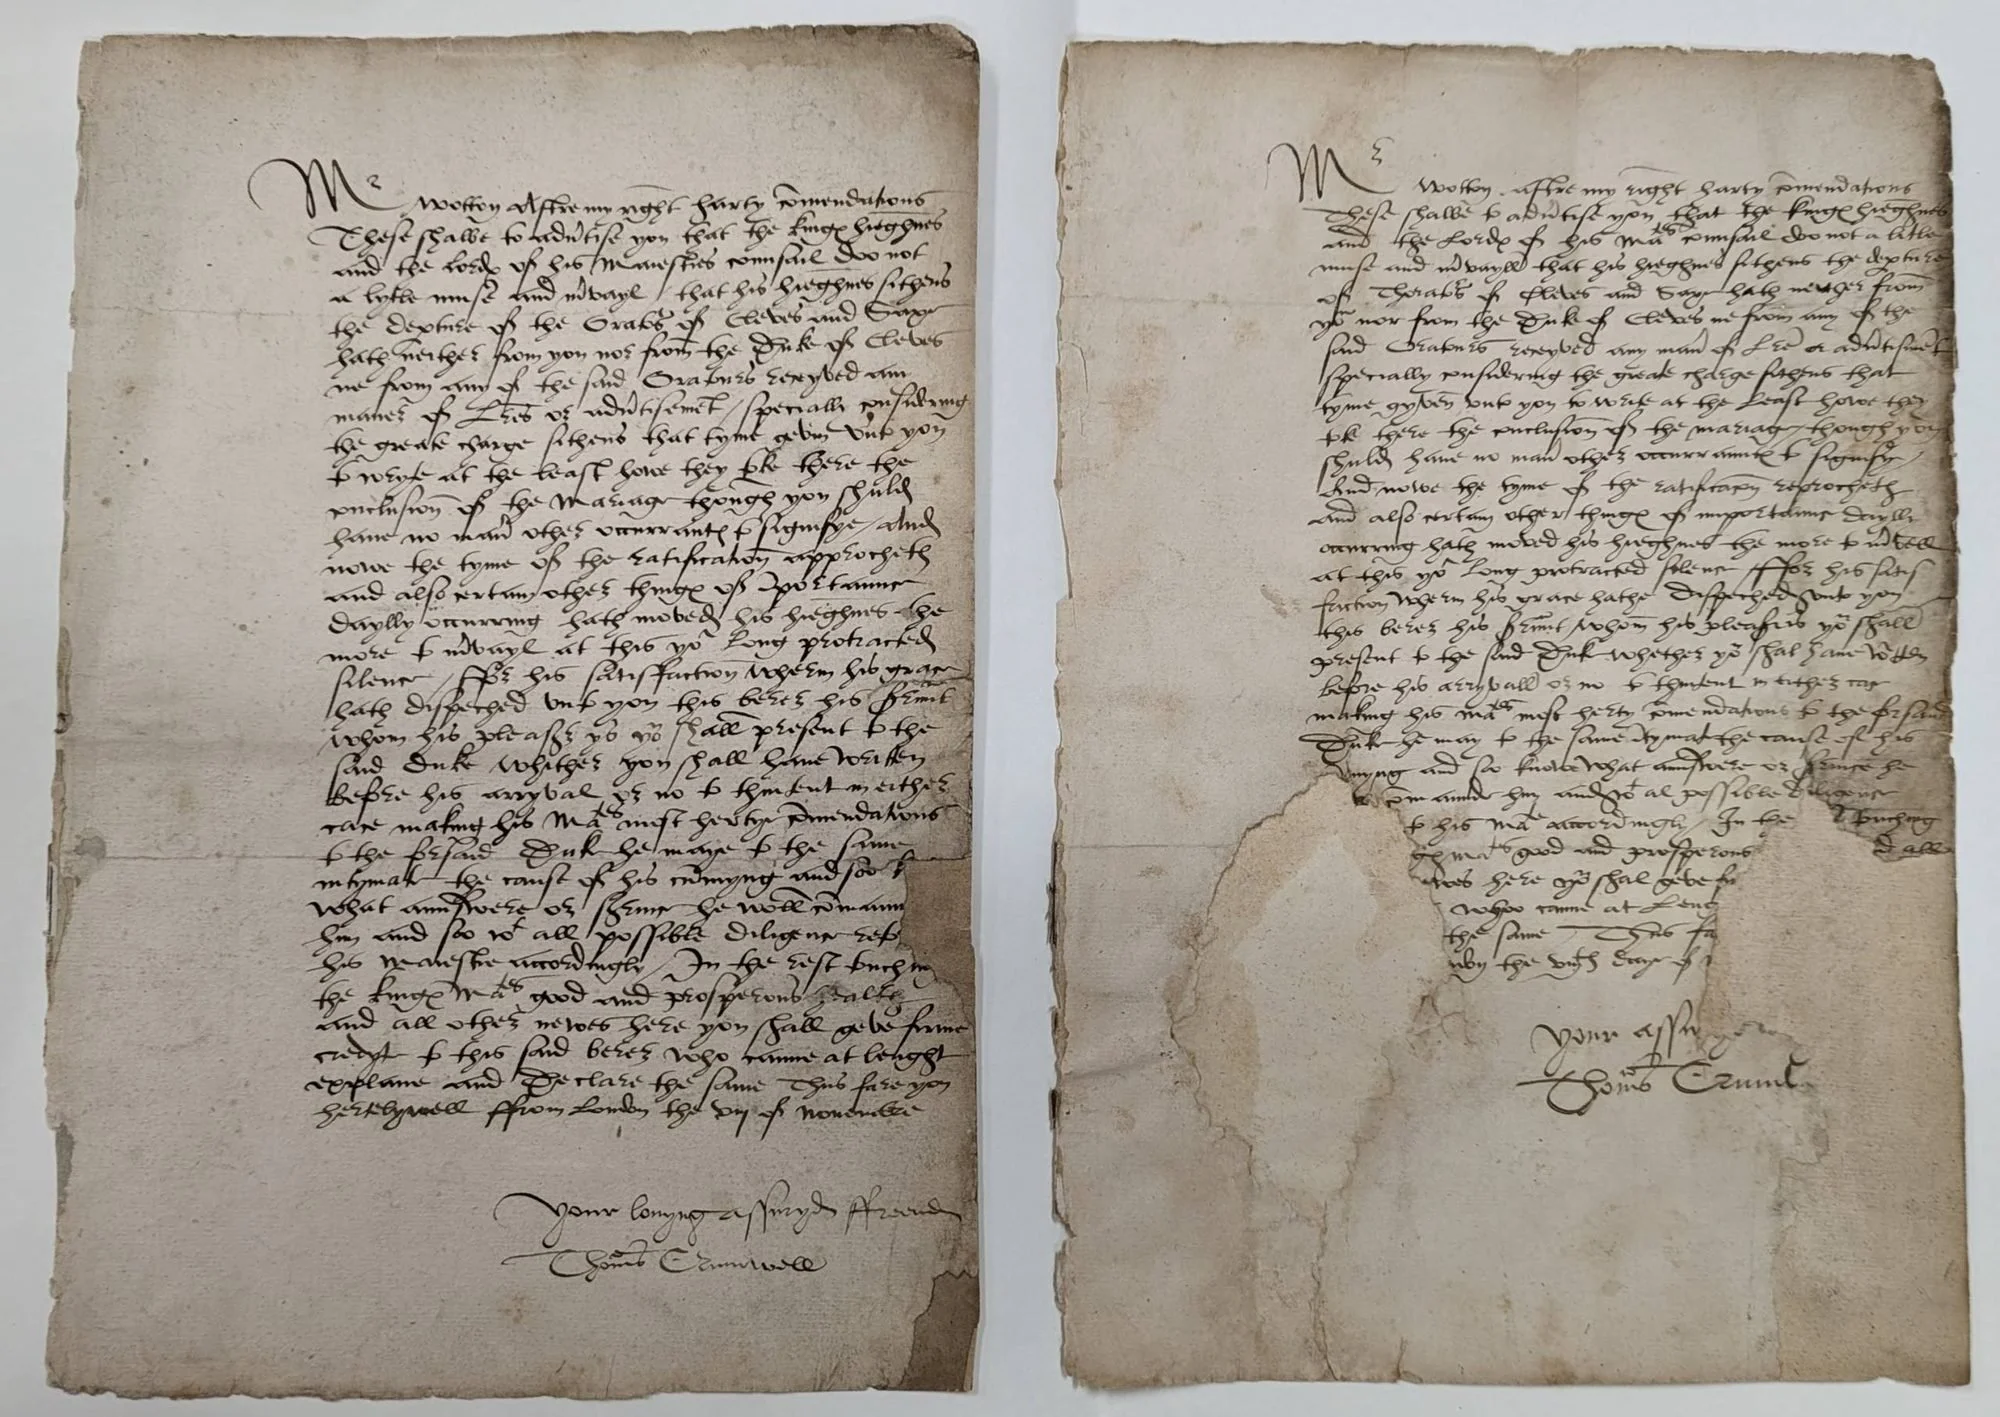 Mr Wotton After my right harty cōmendations
These shalbe to adv'tise you that the kings hieghnes
and the lords of his Maiesties counsail doo not
a lytle muse and m'vayl / that his hieghnes sithens
the dep'ture of the Orators of Cleves and Saxe
hath neither from you nor from the Duke of Cleves
ne from any of the said Orators receyved ani
maner of Lr̄es or adv'tisemēt / specialli considering
the greate charge sithens that tyme gevin unto you
to wryte at the least howe they toke there the
conclusion of the Mariage though you shuld
have no man' other occurrants to signifye / And
nowe the tyme of the ratification approcheth
and also certain other things of īportaunce
daylly occurring hath moved his hieghnes the
more to m'vayl at this yor long protracted
silence / ffor his satisfaction wherin his grace
hath dispeched unto you this berer his s'vnt
whom his pleasr ys yo shall present to the
said Duke whither you shall have writen
before his arryval or no to thintent in either
case making his Mates most hertye cōmendations
to the forsaid Duke he maye to the same
intymate the cause of his cōmyng and soo k
what aunswere or s'vice he woll cōmaun
him and soo wt all possible diligence reto
his Maiestie accordingly / In the rest touching
the kings Mates good and prosperous healthe
and all other newes here you shall geve firme
credyt to this said berer who canne at lenght
explane and Declare the same Thus fare you
hertelywell ffrom London the vij of novembre
Your lovyng assuryd ffreend
Thom̄s Crumwell
Mr Wotton . After my right harty cōmendations
These shalbe to adv'tise you that the kings hieghnes
and the Lords of his Mates counsail doo not a litle
muse and m'vayll that his hieghnes sithens the dep'ture
of Thorators of Cleves and Saxe hath neither from
yo nor from the Duke of Cleves ne from any of the
said Oratours receyved any man' of Lr̄e or adv'tisemēt
specially considering the greate charge sithens that
tyme gyven unto you to write at the least howe they
toke there the conclusion of the mariage / though you
shuld have no man' other occurraunts to signifye /
And nowe the tyme of the ratificacōn approcheth
and also certain other things of importaunce daylly
occurring hath moved his hieghnes the more to m'vell
at this yor long protracted silence / ffor his satis
faction wherin his grace hathe dispeched unto you
this berer his s'vnt / whom his pleasr is yo shall
present to the said Duk whether yo shal have wrttn
before his arryvall or no to thintent in either case
making his Mates most herty cōmendations to the forsaid
Duke he may to the same itymate the cause of his
cōmyng and soo knowe what aunswere or s'vice he
cōmaunde him and wt al possible diligence
to his Mate accordingly / In the touching
Mates good and prosperous d all
wes here yo shal geve fir
whoo canne at leng
the same / Thus fa
the viijth daye of
Your assur
Thom̄s Crumwel